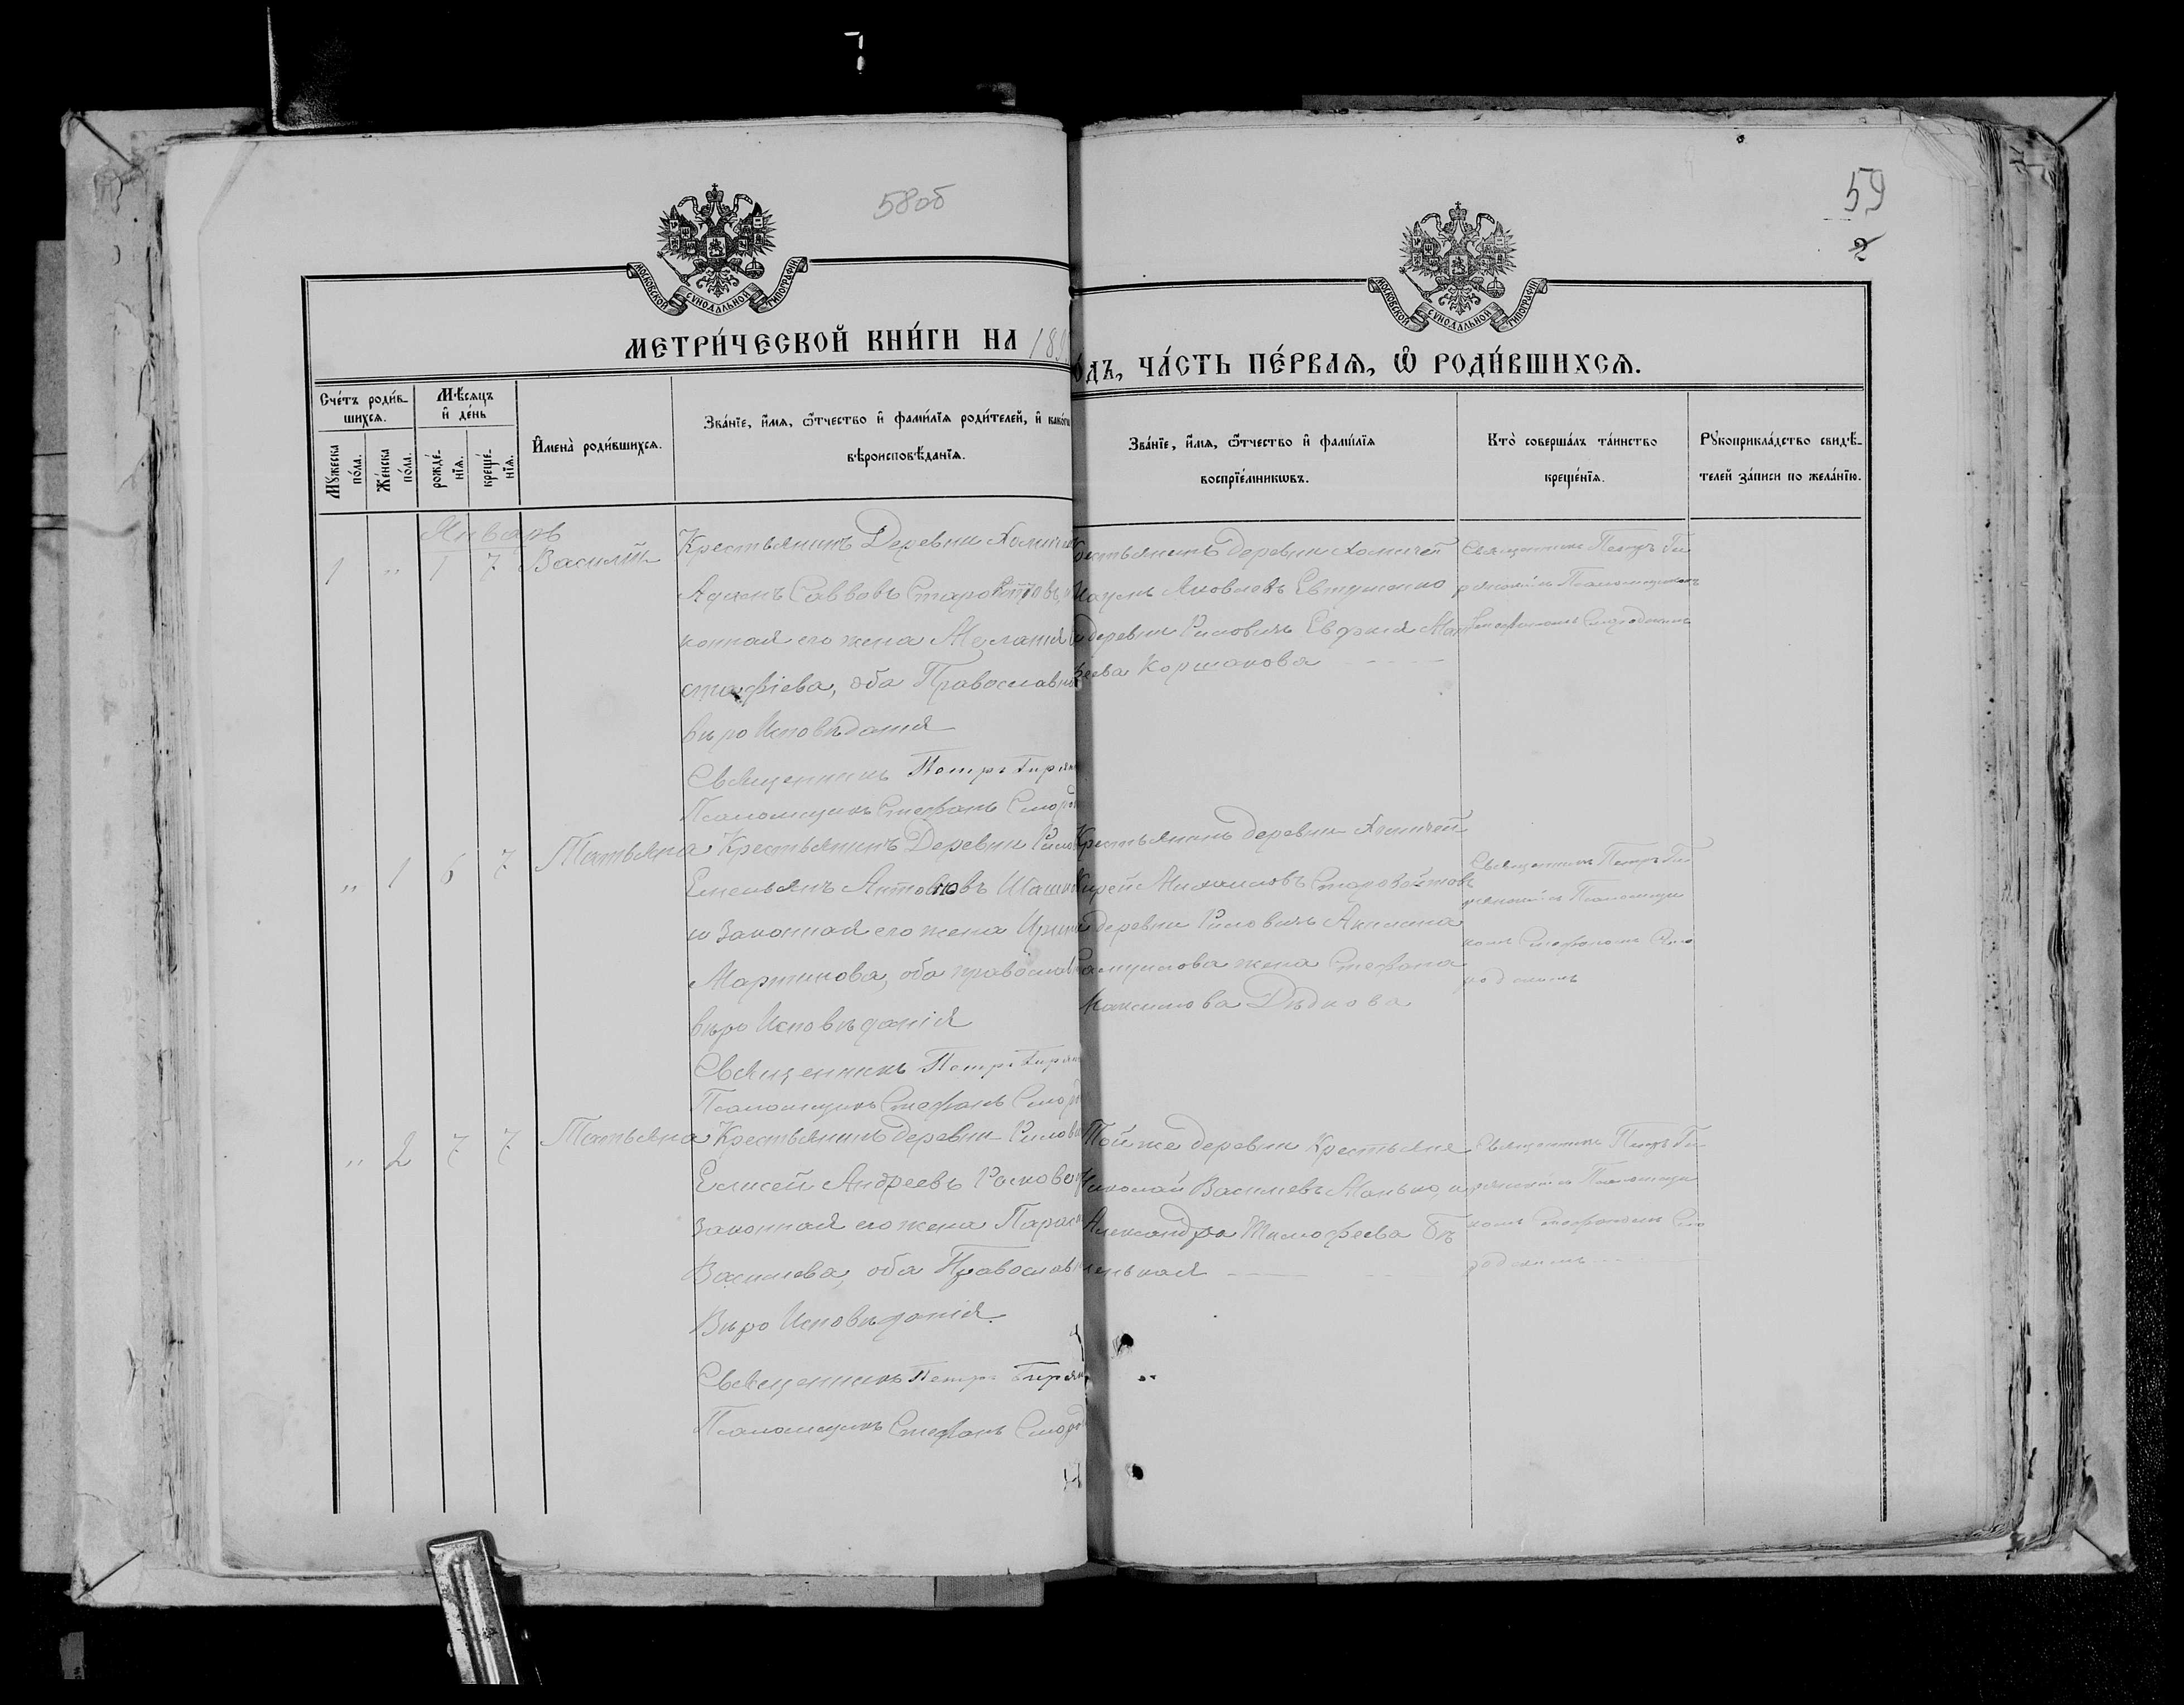 58об
59
2
МОСКОВСКОЙ СУНОДАЛЬНОЙ ТИПОГРАФІИ
МОСКОВСКОЙ СУНОДАЛЬНОЙ ТИПОГРАФІИ
МЕТРИ́ЧЕСКОЙ КНИ́ГИ НА 18
О́ДЪ, ЧА́СТЬ ПЕ́РВАѦ, Ѡ РОДИ́ВШИХСѦ.
Сче́тъ роди́в-
шихсѧ.
Мꙋжеска по́ла.
Же́нска по́ла.
Мѣ́сѧцъ
и҆ де́нь
рожде́-нїѧ.
креще́-нїѧ.
И҆мена̀ роди́вшихсѧ.
Зва́нїе, и҆́мѧ, ѻ҆́тчество и҆ фами́лїѧ роди́телей, и҆ како́гѡ
вѣроисповѣ́данїѧ.
Зва́нїе, и҆́мѧ, ѻ҆́тчество и҆ фами́лїѧ
воспрїе́мникѡвъ.
Кто̀ соверша́лъ та́инство
креще́нїѧ.
Рꙋкоприкла́дство свидѣ́-
телей за́писи по жела́нїю.
Январь
1 " 1 7 Василій
Крестьянинъ Деревни Хомичей
Саввовъ
конная его жена
стафіева, оба Православн
вѣроИсповѣданія
Священникъ Петръ Гирян
Псаломщикъ Стефанъ Смород
крестьянинъ деревни Хомичей
Яковлевъ Евтушенко
и деревни Рыловичъ Евфимія Мат
ѳеева Коршакова
Священникъ Петръ Ги
рянскій съ Псаломщикомъ
Стефаномъ Смородскимъ
" 1 6 7 Татьяна
Крестьянинъ Деревни Рылов
Емельянъ Антоновъ Машк
и Законная его жена Ирина
Мартинова, оба православ
вѣроИсповѣданія
Священникъ Петръ Гирян
Псаломщикъ Стефанъ Смор
Крестьянинъ деревни Хомичей
Михаиловъ Старовойтовъ
и деревни Рыловичъ Акилина
Самуилова жена Стефана
Максимова Дѣдкова
Священникъ Петръ Ги
рянскій съ Псаломщи
комъ Стефаномъ Смо
родскимъ
" 2 7 7 Татьяна
Крестьянинъ деревни Рылов
Елисей Андреевъ
законная его жена Параск
Василіева, оба Православ
ВѣроИсповѣданія.
Священникъ Петръ Гирян
Псаломщикъ Стефанъ Смород
Той же деревни Крестьяне
Николай Василіевъ Манько, и
Александра Тимофеева Бѣ
ленькая
Священникъ Петръ Ги
рянскій съ Псаломщи
комъ Стефаномъ Смо
родскимъ